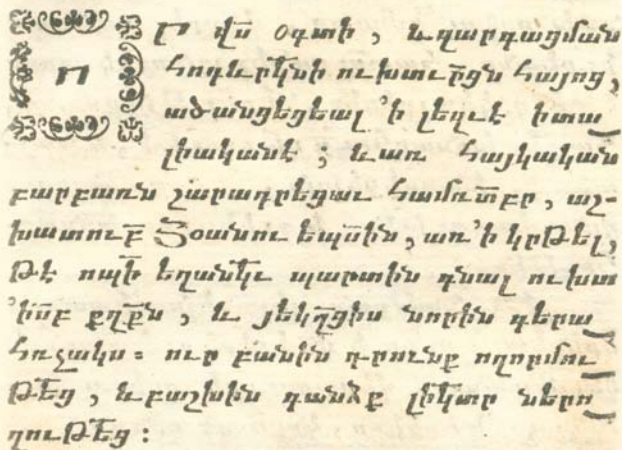 ՈՐ վս̄ օգտի , և զարգացման
հոգևոր̄կնի ուխտաւո̄րցն հայոց,
ածանցեցեալ ՚ի լեզուէ իտա
լիականէ , և առ հայկական
բարբառն շարադրեցաւ համառօ̄տբր , աշ-
խատութբ̄ Յօաննու եպս̄ին , առ ՚ի կրթել,
թէ որպի̄ եղանկ̄ւ պարտին գնալ ուխտ
քղք̄ն , և յեկղ̄ցիս նորին գերա
հռչակս : ուր բանին դրունք ողորմու
թե̄ց , և բաշխին գանձք լիկ̄տր ներո
ղութե̄ց :